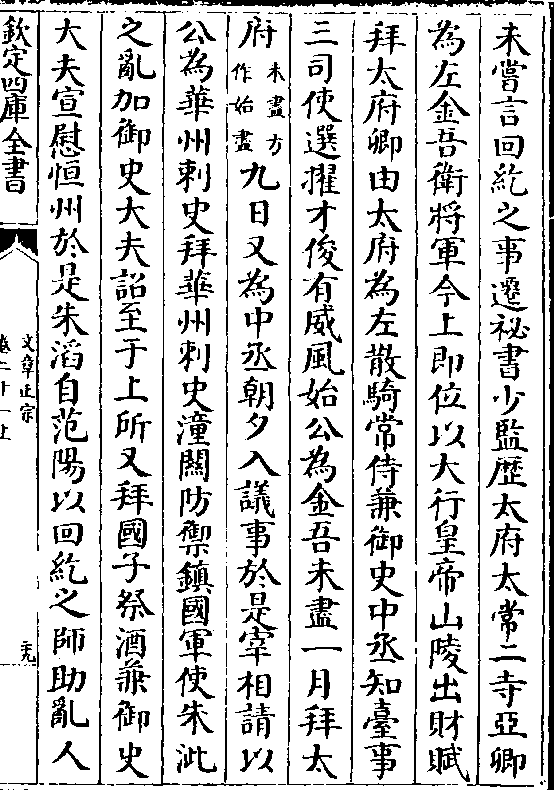 未嘗言回紇之事遷祕書少監歴太府太常二寺亞卿
為左金吾衛將軍今上即位以大行皇帝山陵出財賦
拜太府卿由太府為左散騎常侍兼御史中丞知臺事
三司使選擢才俊有威風始公為金吾未盡一月拜太
府未盡方作始盡九日又為中丞朝夕入議事於是宰相請以
公為華州刺史拜華州刺史潼關防禦鎮國軍使朱泚
之亂加御史大夫詔至于上所又拜國子祭酒兼御史
大夫宣慰恒州於是朱滔自范陽以回紇之師助亂人
欽定四庫全書
文章正宗
卷二十一上
二十九